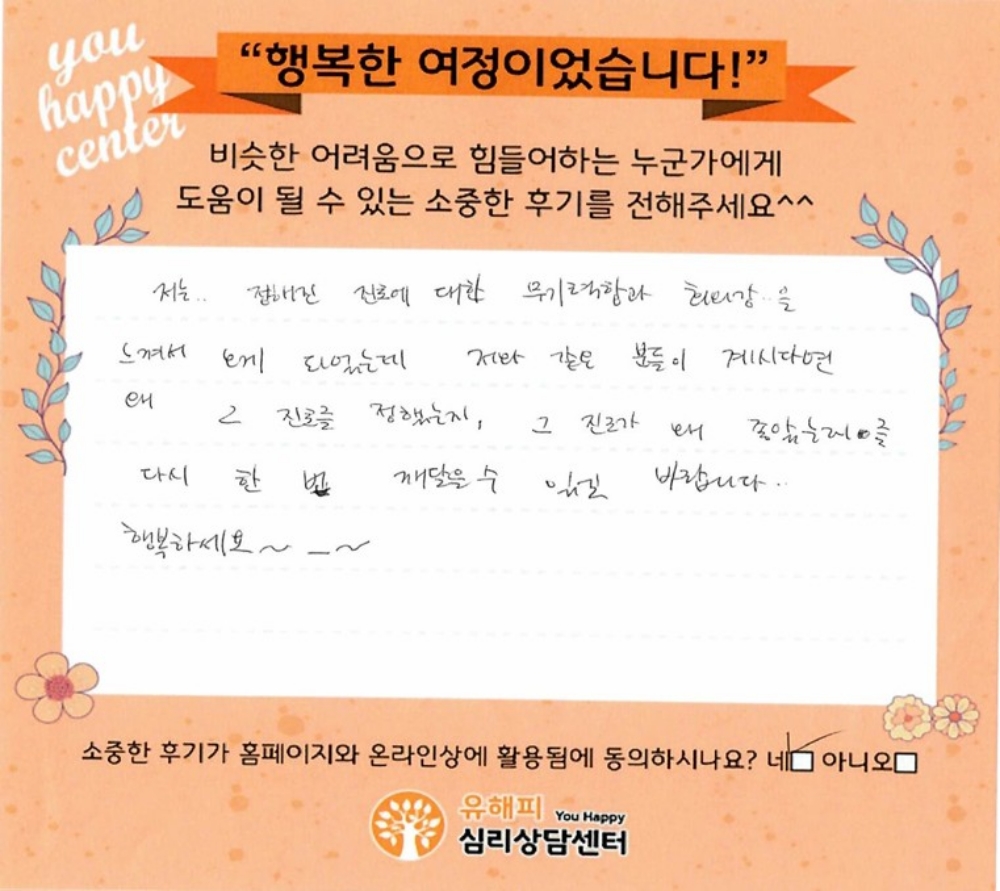 you
happy
center
“행복한 여정이었습니다!”
비슷한 어려움으로 힘들어하는 누군가에게
도움이 될 수 있는 소중한 후기를 전해주세요^^
저는.. 정해진 진로에 대한 무기력함과 회의감..을
느껴서 오게 되었는데 저와 같은 분들이 계시다면
왜 그 진로를 정했는지, 그 진로가 왜 좋았는지를
다시 한 번 깨달을 수 있길 바랍니다..
행복하세요~ _~
소중한 후기가 홈페이지와 온라인상에 활용됨에 동의하시나요? 네 아니오
유해피 You Happy
심리상담센터